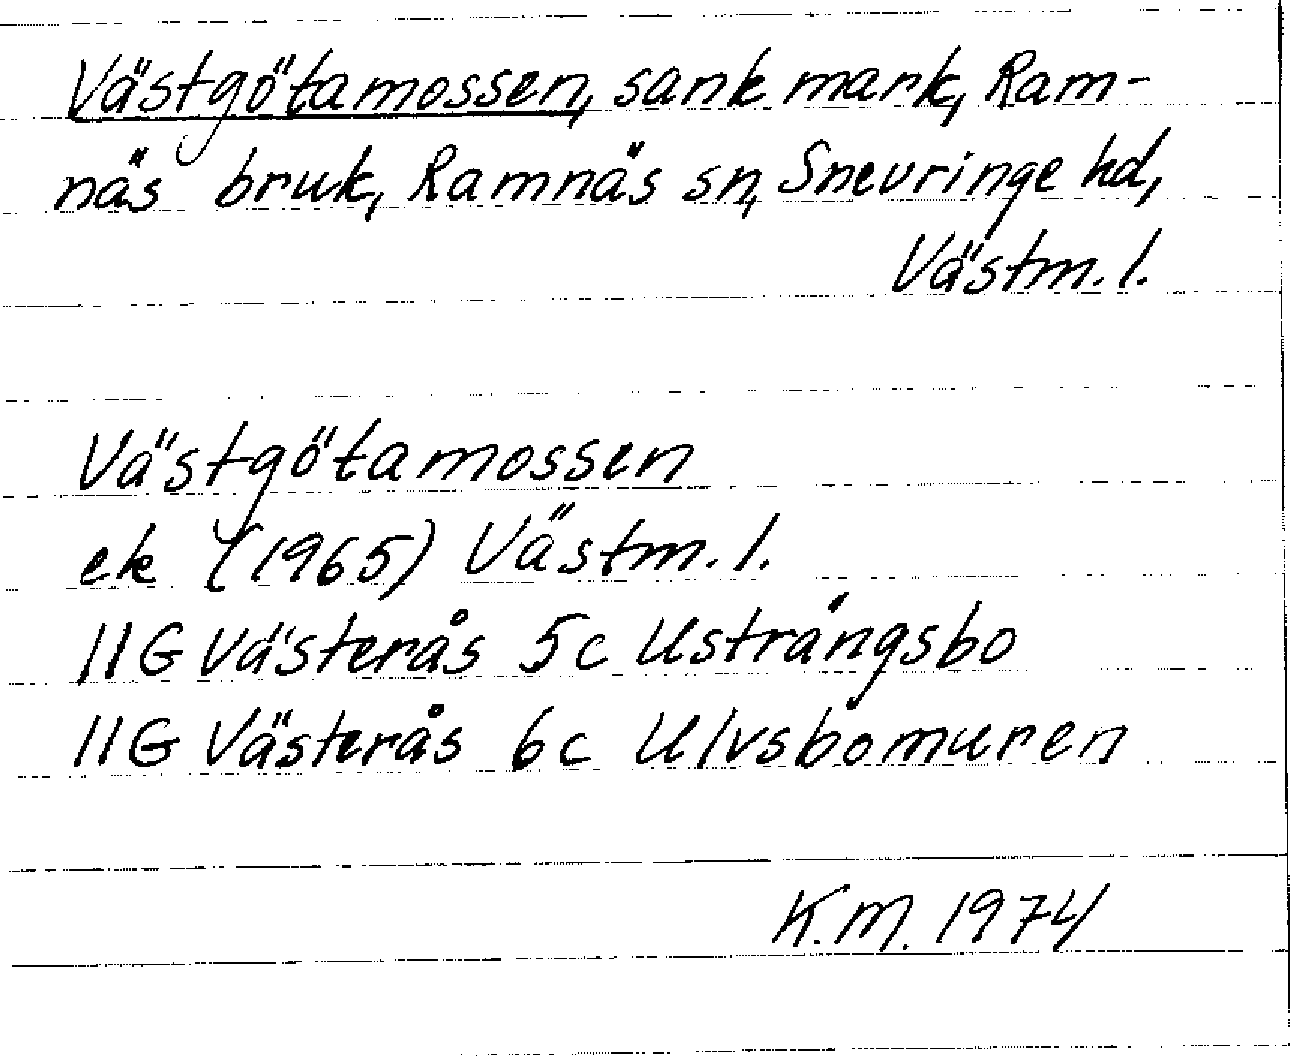 Västgötamossen, sank mark, Ram-
näs bruk, Ramnäs sn, Snevringe hd,
Västm. l.
Västgötamossen
ek (1965) Västm. l.
11G Västerås 5c Usträngsbo
11G Västerås 6c Ulvsbomuren
K.M. 1974